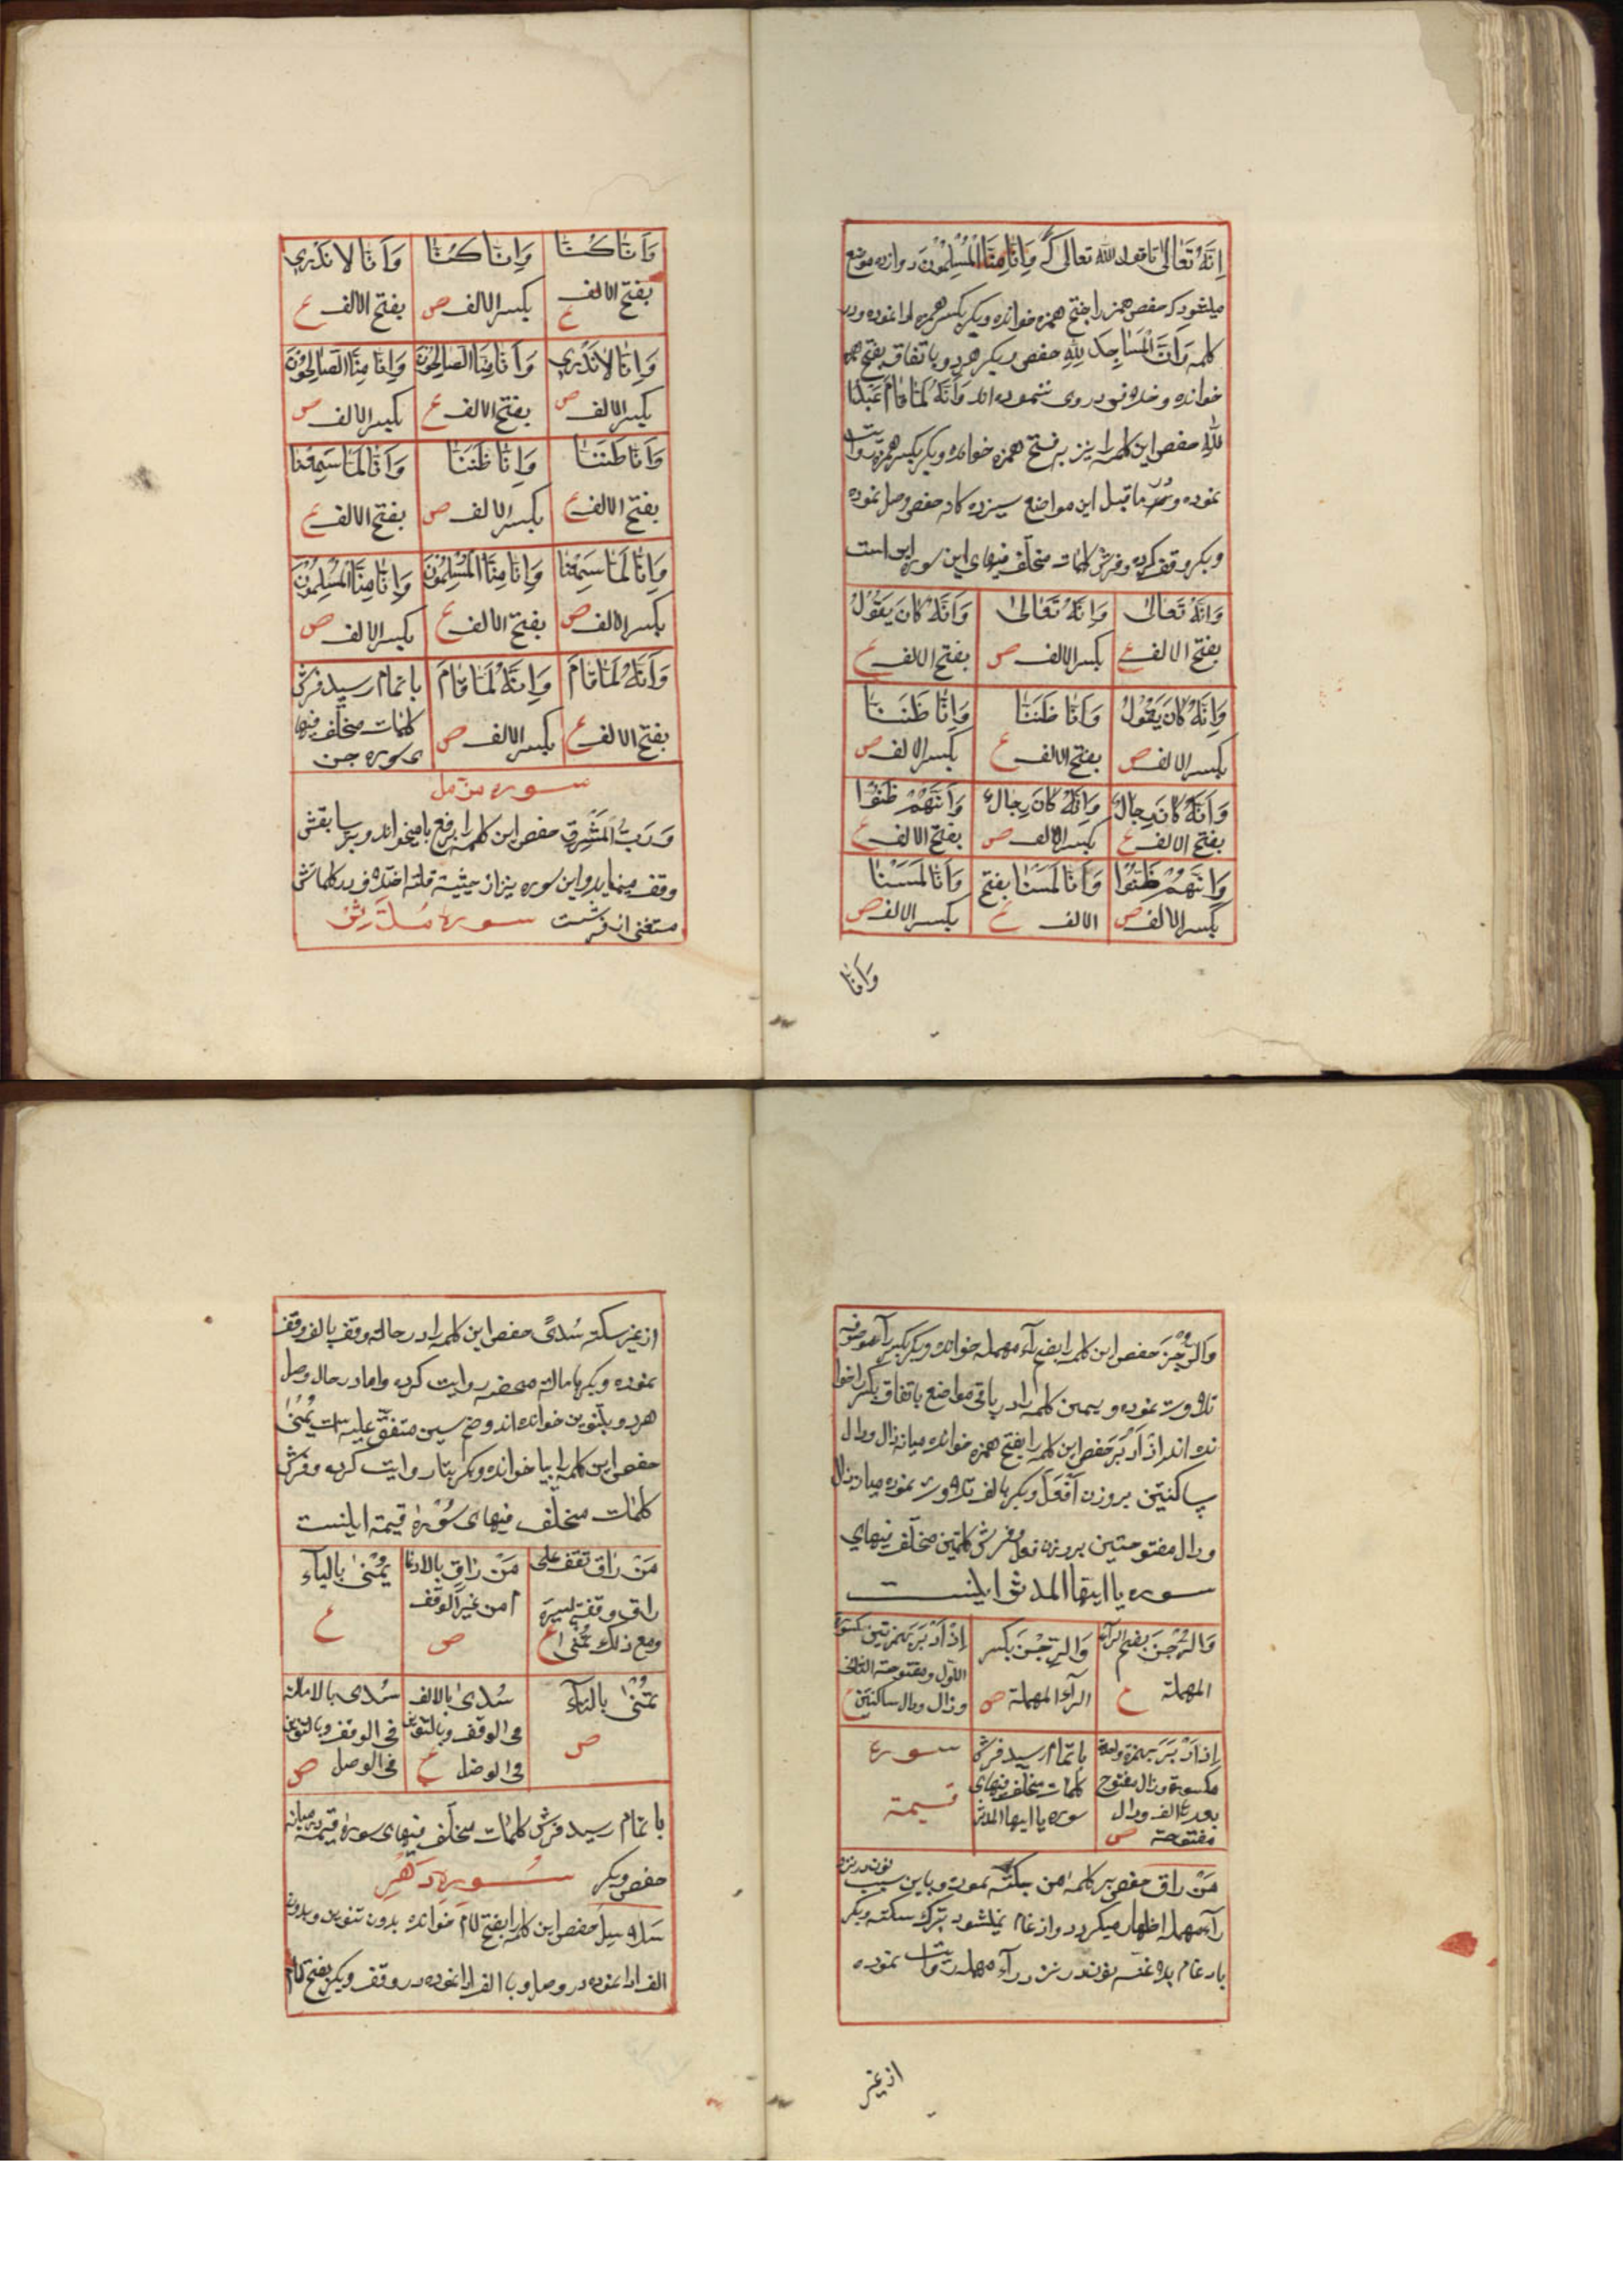 اِنَّهُ تَعَالٰی تا قول الله تعالی که وَاَنَّا مِنَّا الْمُسْلِمُوْنَ دوازده موضع
میشود که حفص همزه را بفتح همزه خوانده و بکر بکسر همزه ادا نموده و در
کلمه وَاَنَّ الْمَسَاجِدَ لِلّٰهِ حفص و بکر هر دو باتفاق بفتح همزه
خوانده و خلاف در وی ننموده اند وَاَنَّهُ لَمَّا قَامَ عَبْدُ
اللّٰهِ حفص این کلمه را نیز بفتح همزه خوانده و بکر بکسر همزه روایت
نموده و بر ماقبل این مواضع سیزده کانه حفص وصل نموده
و بکر وقف کرده و فرش کلمات مختلف فیهای این سوره این است
وَاَنَّهُ تَعَالٰی
بفتح الالف ع
وَاِنَّهُ تَعَالٰی
بکسر الالف ص
وَاَنَّهُ كَانَ يَقُوْلُ
بفتح الالف ع
وَاِنَّهُ كَانَ يَقُوْلُ
بکسر الالف ص
وَاَنَّا ظَنَنَّا
بفتح الالف ع
وَاِنَّا ظَنَنَّا
بکسر الالف ص
وَاَنَّهُ كَانَ رِجَالٌ
بفتح الالف ع
وَاِنَّهُ كَانَ رِجَالٌ
بکسر الالف ص
وَاَنَّهُمْ ظَنُّوْا
بفتح الالف ع
وَاِنَّهُمْ ظَنُّوْا
بکسر الالف ص
وَاَنَّا لَمَسْنَا بفتح
الالف ع
وَاِنَّا لَمَسْنَا
بکسر الالف ص
وَاَنَّا
وَاَنَّا كُنَّا
بفتح الالف ع
وَاِنَّا كُنَّا
بکسر الالف ص
وَاَنَّا لَا نَدْرِي
بفتح الالف ع
وَاِنَّا لَا نَدْرِي
بکسر الالف ص
وَاَنَّا مِنَّا الصَّالِحُوْنَ
بفتح الالف ع
وَاِنَّا مِنَّا الصَّالِحُوْنَ
بکسر الالف ص
وَاَنَّا ظَنَنَّا
بفتح الالف ع
وَاِنَّا ظَنَنَّا
بکسر الالف ص
وَاَنَّا لَمَّا سَمِعْنَا
بفتح الالف ع
وَاِنَّا لَمَّا سَمِعْنَا
بکسر الالف ص
وَاَنَّا مِنَّا الْمُسْلِمُوْنَ
بفتح الالف ع
وَاِنَّا مِنَّا الْمُسْلِمُوْنَ
بکسر الالف ص
وَاَنَّهُ لَمَّا قَامَ
بفتح الالف ع
وَاِنَّهُ لَمَّا قَامَ
بکسر الالف ص
باتمام رسید فرش
کلمات مختلف فیها
ی سوره جن
سوره مزمل
وَرَبُّ الْمَشْرِقِ حفص این کلمه را برفع با میخواند و بر سابقش
وقف مینماید و این سوره نیز از حیثیة قلة اختلاف در کلماتش
مستغنی از فرشست سوره مدثر
وَالرُّجْزَ حفص این کلمه را بضم رآء مهمله خوانده و بکر بکسر رآء موصوفه
تلاوت نموده و همین کلمه را در باقی مواضع باتفاق بکسر را خوا
نده اند اِذْ اَدْبَرَ حفص این کلمه را بفتح همزه خوانده میانه ذال و دال
ساکنتین بروزن اَفْعَلَ و بکر بالف تلاوت نموده میان ذال
و دال مفتوحتین بروزن فعل و فرش کلمتین مختلف فیهای
سوره یا ایها المدثر اینست
وَالرُّجْزَ بضم الرآء
المهملة ع
وَالرِّجْزَ بکسر
الرآء المهملة ص
اِذْ اَدْبَرَ بهمزتین مکسورة
الاول ومفتوحة الثانی
وذال ودال ساکنتین ع
اِذَا دَبَرَ بهمزة واحدة
مکسورة وذال مفتوح
بعدها الف ودال
مفتوحة ص
باتمام رسید فرش
کلمات مختلف فیهای
سوره یا ایها المدثر
سورة
قیمة
مَنْ رَاقٍ حفص بر کلمه من سکته نموده و باین سبب نون در نزد
رآء مهمله اظهار میکردد و ادغام نمیشود بترک سکته و بکر
بادغام بلاغنه نون در نزد رآء مهمله روایت نموده
از غیر
از غیر سکته سُدًی حفص این کلمه را در حالة وقف بالف وقف
نموده و بکر باماله محضه روایت کرده و اما در حال وصل
هر دو بتنوین خوانده اند و ضم سین متفق علیه است یُمْنٰی
حفص این کلمه را بیا خوانده و بکر بتا روایت کرده و فرش
کلمات مختلف فیهای سُوْرَهٔ قیمة اینست
مَنْ رَاق تقف علی
راق وقفة یسیرة
ومع ذلک ع
مَنْ رَاقٍ بالادغا
م من غیر الوقف
ص
یُمْنٰی بالیآء
ع
تُمْنٰی بالتآء
ص
سُدی بالالف
فی الوقف وبالتنوین
فی الوصل ع
سُدی بالامالة
فی الوقف وبالتنوین
فی الوصل ص
باتمام رسید فرش کلمات مختلف فیهای سورهٔ قیمة میانه
حفص و بکر سُوره دَهْر
سَلاسِلَ حفص این کلمه را بفتح لام خوانده بدون تنوین و بدون
الف ادا نموده در وصل و با الف ادا نموده در وقف و بکر بفتح لام